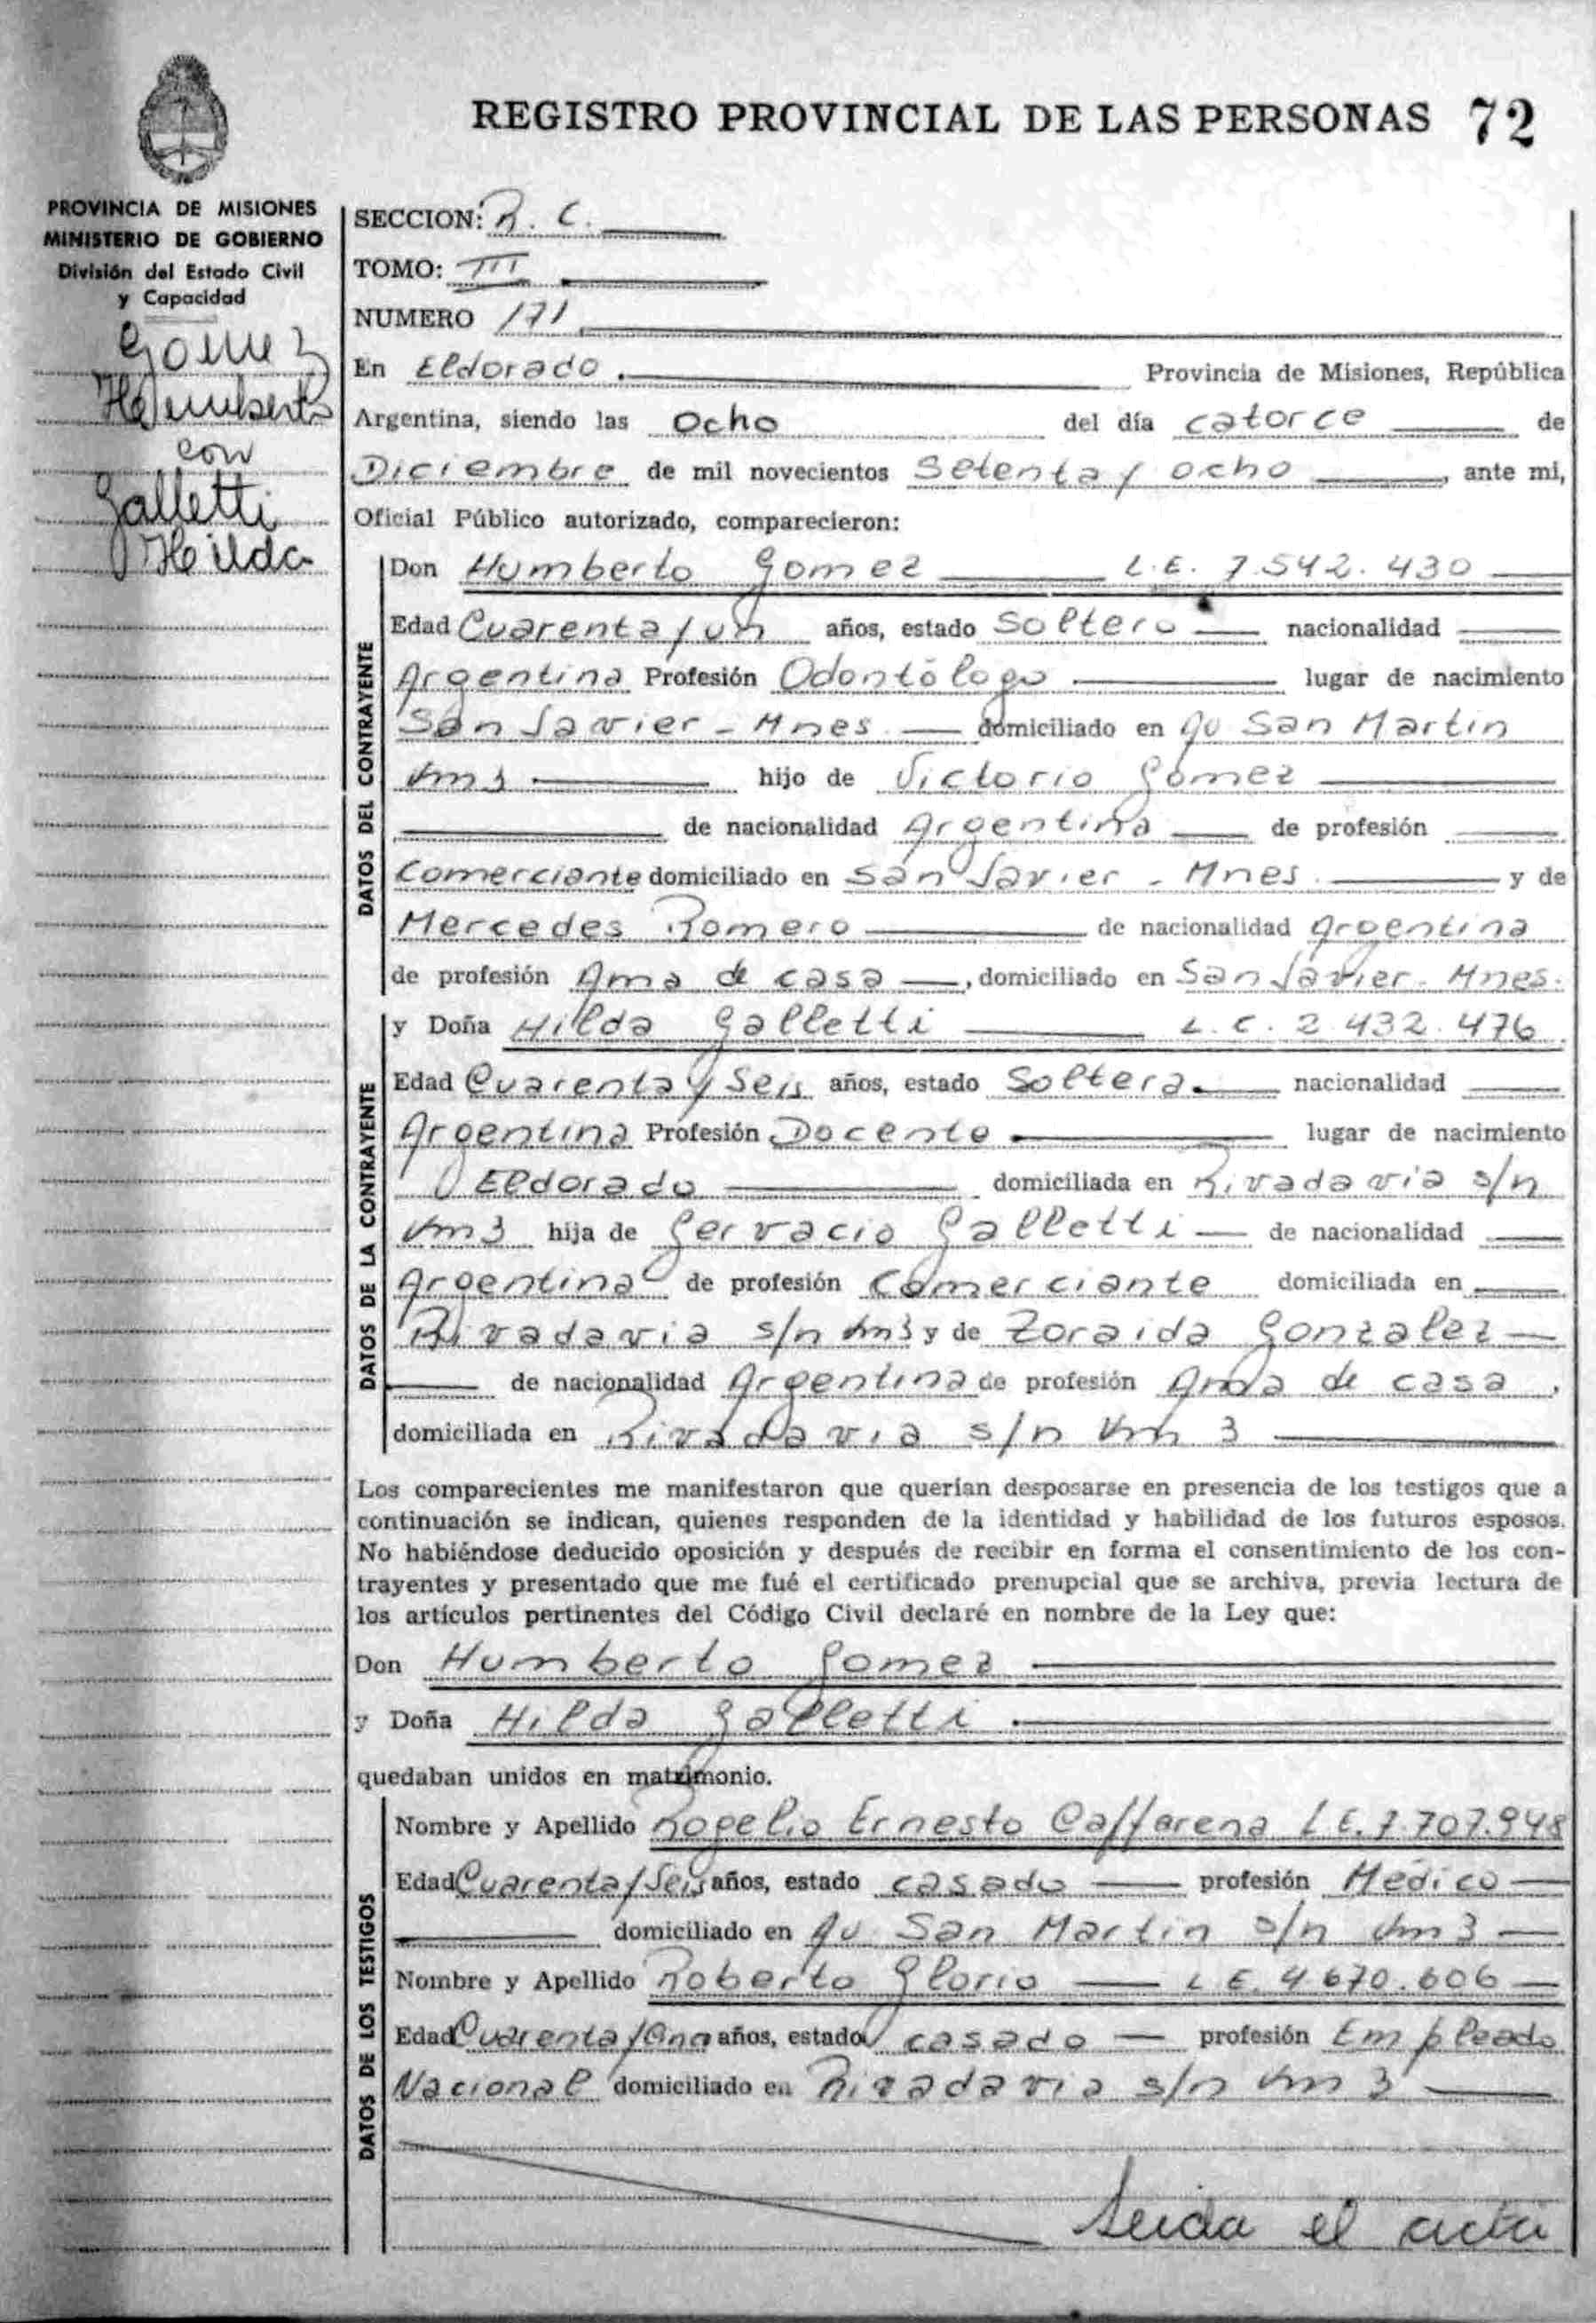 REGISTRO PROVINCIAL DE LAS PERSONAS 72
PROVINCIA DE MISIONES
MINISTERIO DE GOBIERNO
División del Estado Civil
y Capacidad
Gomez
Humberto
con
Galletti
Hilda
SECCION: R. C.
TOMO: III
NUMERO 171
En Eldorado. Provincia de Misiones, República
Argentina, siendo las Ocho del día catorce de
Diciembre de mil novecientos Setenta y ocho, ante mi,
Oficial Público autorizado, comparecieron:
DATOS DEL CONTRAYENTE
Don Humberto Gomez L.E. 7.542.430
Edad Cuarenta y un años, estado Soltero nacionalidad
Argentina Profesión Odontólogo lugar de nacimiento
San Javier - Mnes domiciliado en Av San Martin
Km 3 hijo de Victorio Gomez
de nacionalidad Argentina de profesión
Comerciante domiciliado en San Javier - Mnes. y de
Mercedes Romero de nacionalidad Argentina
de profesión Ama de casa, domiciliado en San Javier - Mnes.
DATOS DE LA CONTRAYENTE
y Doña Hilda Galletti L.C. 2.432.476
Edad Cuarenta y Seis años, estado Soltera. nacionalidad
Argentina Profesión Docente lugar de nacimiento
Eldorado domiciliada en Rivadavia s/n
Km 3 hija de Gervacio Galletti de nacionalidad
Argentina de profesión Comerciante domiciliada en
Rivadavia s/n Km 3 y de Zoraida Gonzalez
de nacionalidad Argentina de profesión Ama de casa,
domiciliada en Rivadavia s/n Km 3
Los comparecientes me manifestaron que querían desposarse en presencia de los testigos que a
continuación se indican, quienes responden de la identidad y habilidad de los futuros esposos.
No habiéndose deducido oposición y después de recibir en forma el consentimiento de los con-
trayentes y presentado que me fué el certificado prenupcial que se archiva, previa lectura de
los artículos pertinentes del Código Civil declaré en nombre de la Ley que:
Don Humberto Gomez
y Doña Hilda Galletti
quedaban unidos en matrimonio.
DATOS DE LOS TESTIGOS
Nombre y Apellido Rogelio Ernesto Caffarena L.E. 7.707.948
Edad Cuarenta y Seis años, estado casado profesión Médico
domiciliado en Av San Martin s/n Km 3
Nombre y Apellido Roberto Glorio L.E. 4.670.606
Edad Cuarenta y años, estado casado profesión Empleado
Nacional domiciliado en Rivadavia s/n Km 3
Leida el acta